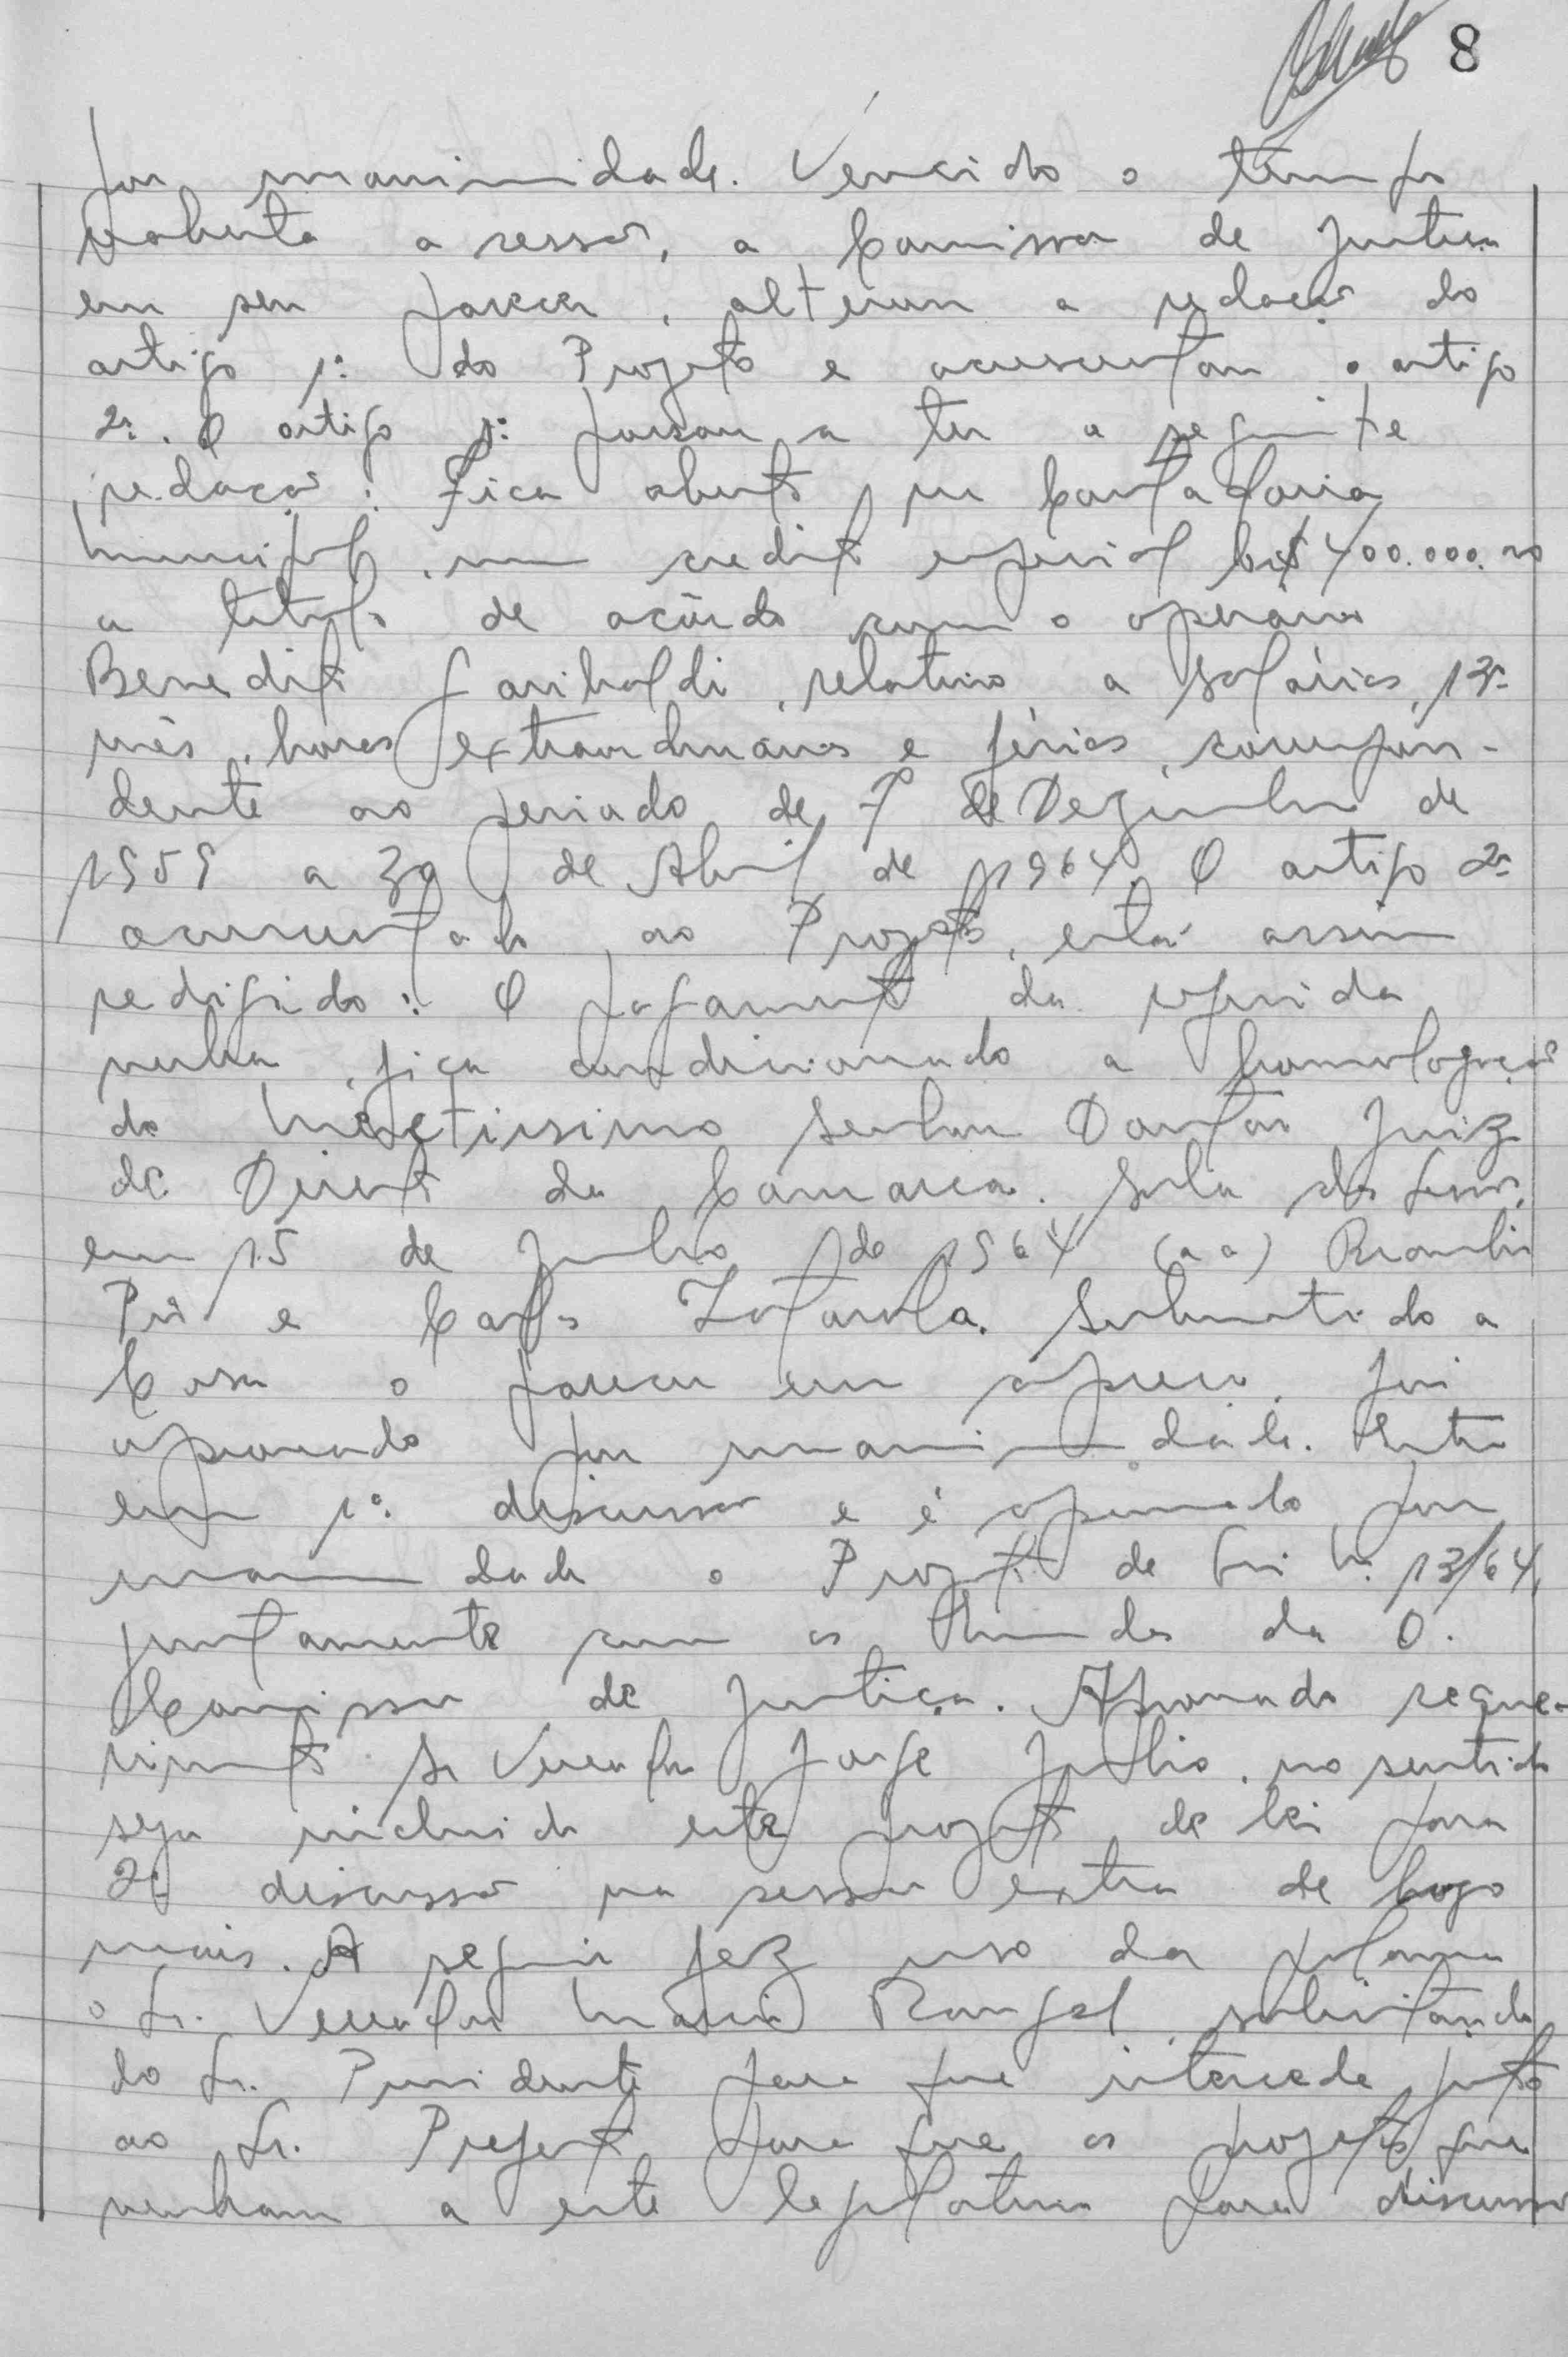 8
por unanimidade. Vencido o tempo
reaberta a sessão, a Comissão de Justiça
em seu parecer, alteram a redação do
artigo 1º do Projeto e acrescentam o artigo
2º. O artigo 1º passou a ter a seguinte
redação: Fica aberto, na Contadoria
Municipal, um credito especial Cr$ 400.000,00
a titulo de acôrdo com o operário
Benedito Garibaldi, relativo a salários, 13º
mês, horas extraordinárias e férias, correspon-
dente ao periodo de 7 de Dezembro de
1959 a 30 de Abril de 1964. O artigo 2º
acrescentado ao Projeto, está assim
redigido: O pagamento da referida
verba, fica condicionado a homologação
do Meretissimo Senhor Doutor Juiz
de Direito da Comarca. Sala das Sessões,
em 15 de Julho de 1964 (aa)
e Carlos Submetido a
Casa o parecer em apreço, foi
aprovado por unanimidade. Entra
em 1ª discussão e é aprovado por
unanimidade o Projeto de Lei Nº 13/64,
juntamente com as Emendas da O.
Comissão de Justiça. Aprovado reque-
rimento do Vereador Jorge Julio, no sentido
seja incluido este projeto de lei para
2ª discussão na sessão extra de logo
mais. A seguir fez uso da palavra
o Sr. Vereador Mario Rangel, solicitando
do Sr. Presidente para que interceda junto
ao Sr. Prefeito para que os projetos que
venham a este legislativo para discussão